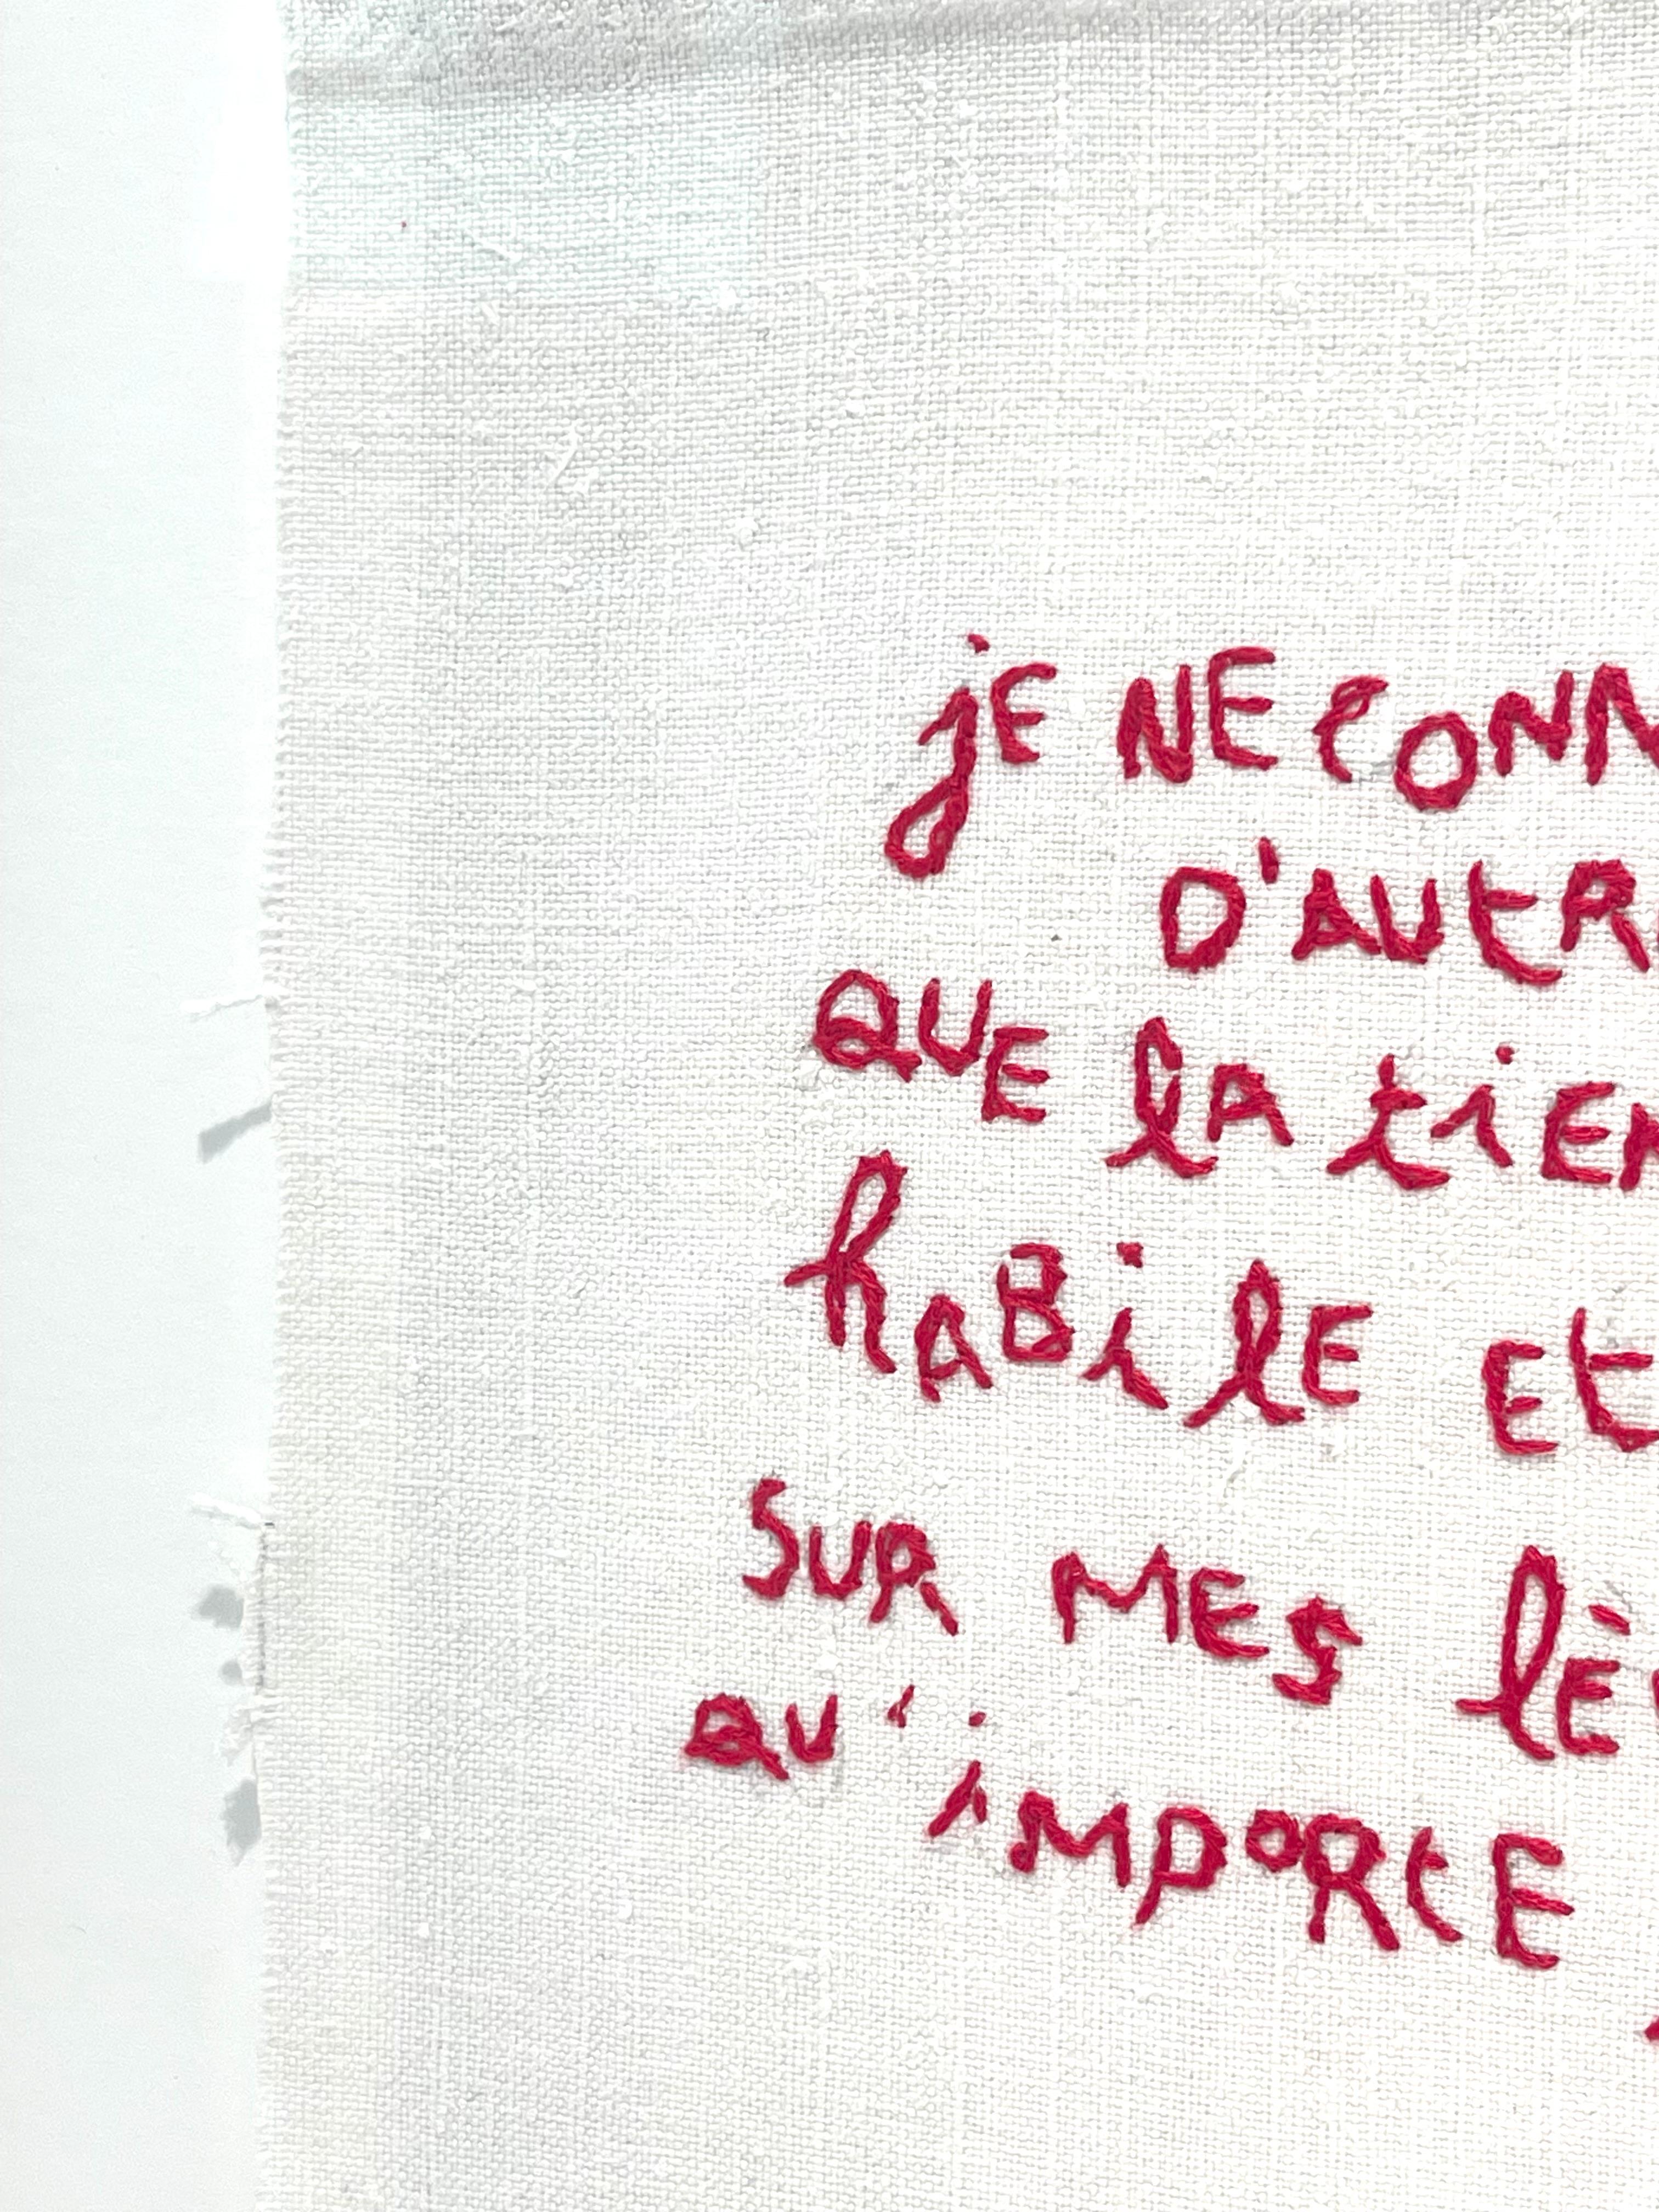 jE NE CONN
D'AUtR
QUE lA tiEN
hABilE Et
SUR MES lÈV
QU'iMPORtE